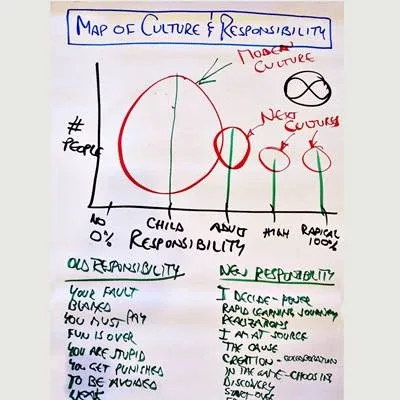 MAP OF CULTURE & RESPONSIBILITY
MODERN
CULTURE
NEXT
CULTURES
#
PEOPLE
NO CHILD ADULT HIGH RADICAL
0% RESPONSIBILITY 100%
OLD RESPONSIBILITY
YOUR FAULT
BLAMED
YOU MUST PAY
FUN IS OVER
YOU ARE STUPID
YOU GET PUNISHED
TO BE AVOIDED
NEW RESPONSIBILITY
I DECIDE - POWER
RAPID LEARNING JOURNEY
REALIZATIONS
I AM AT SOURCE
THE CAUSE
CREATION - COLLABORATION
IN THE GAME - CHOOSING
DISCOVERY
START OVER